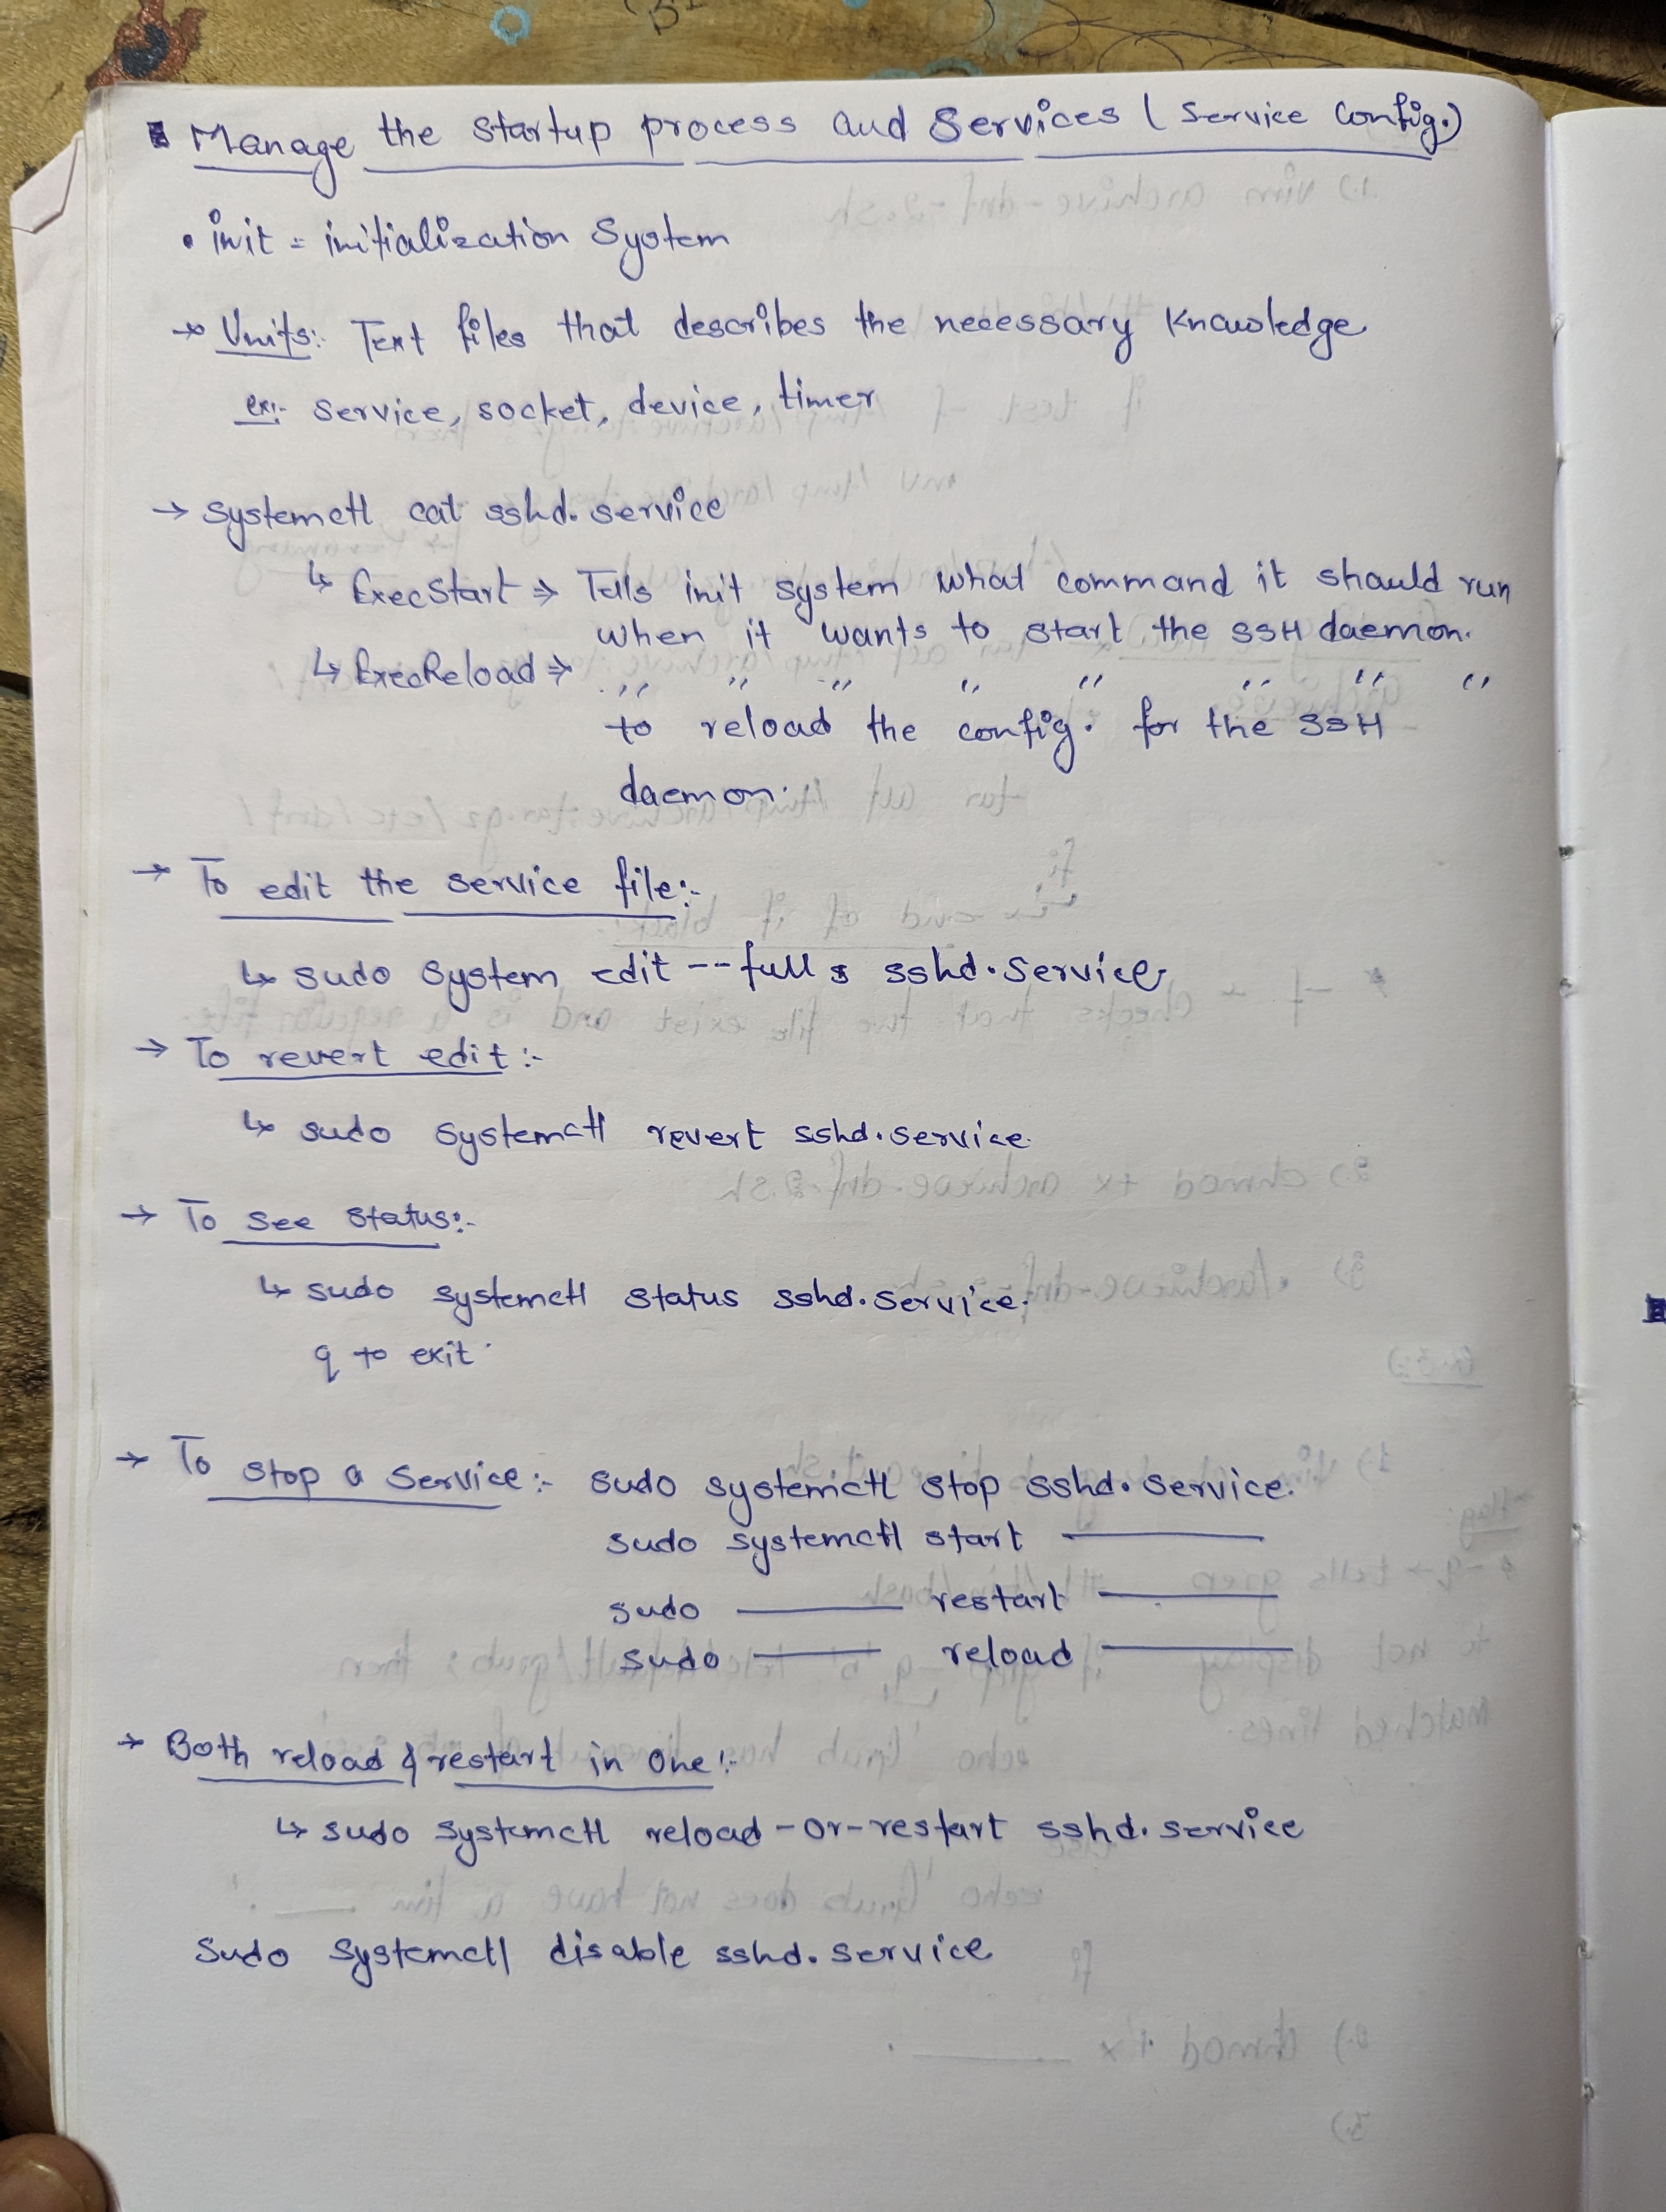 Manage the startup process and Services ( Service Config.)
• init = initialization System
→ Units:- Text files that describes the necessary Knowledge
ex:- Service, socket, device, timer
→ systemctl cat sshd.service
↳ ExecStart ⇒ Tells init system what command it should run
when it wants to start the SSH daemon.
↳ ExecReload ⇒ " " " " " " " "
to reload the config. for the SSH
daemon.
→ To edit the service file:-
↳ sudo system edit --full sshd.service
→ To revert edit :-
↳ sudo systemctl revert sshd.service
→ To see status:-
↳ sudo systemctl status sshd.service.
q to exit
→ To stop a Service:- sudo systemctl stop sshd.service.
sudo systemctl start ———
sudo ——— restart ———
sudo ——— reload ———
→ Both reload & restart in one :-
↳ sudo systemctl reload-or-restart sshd.service
Sudo systemctl disable sshd.service